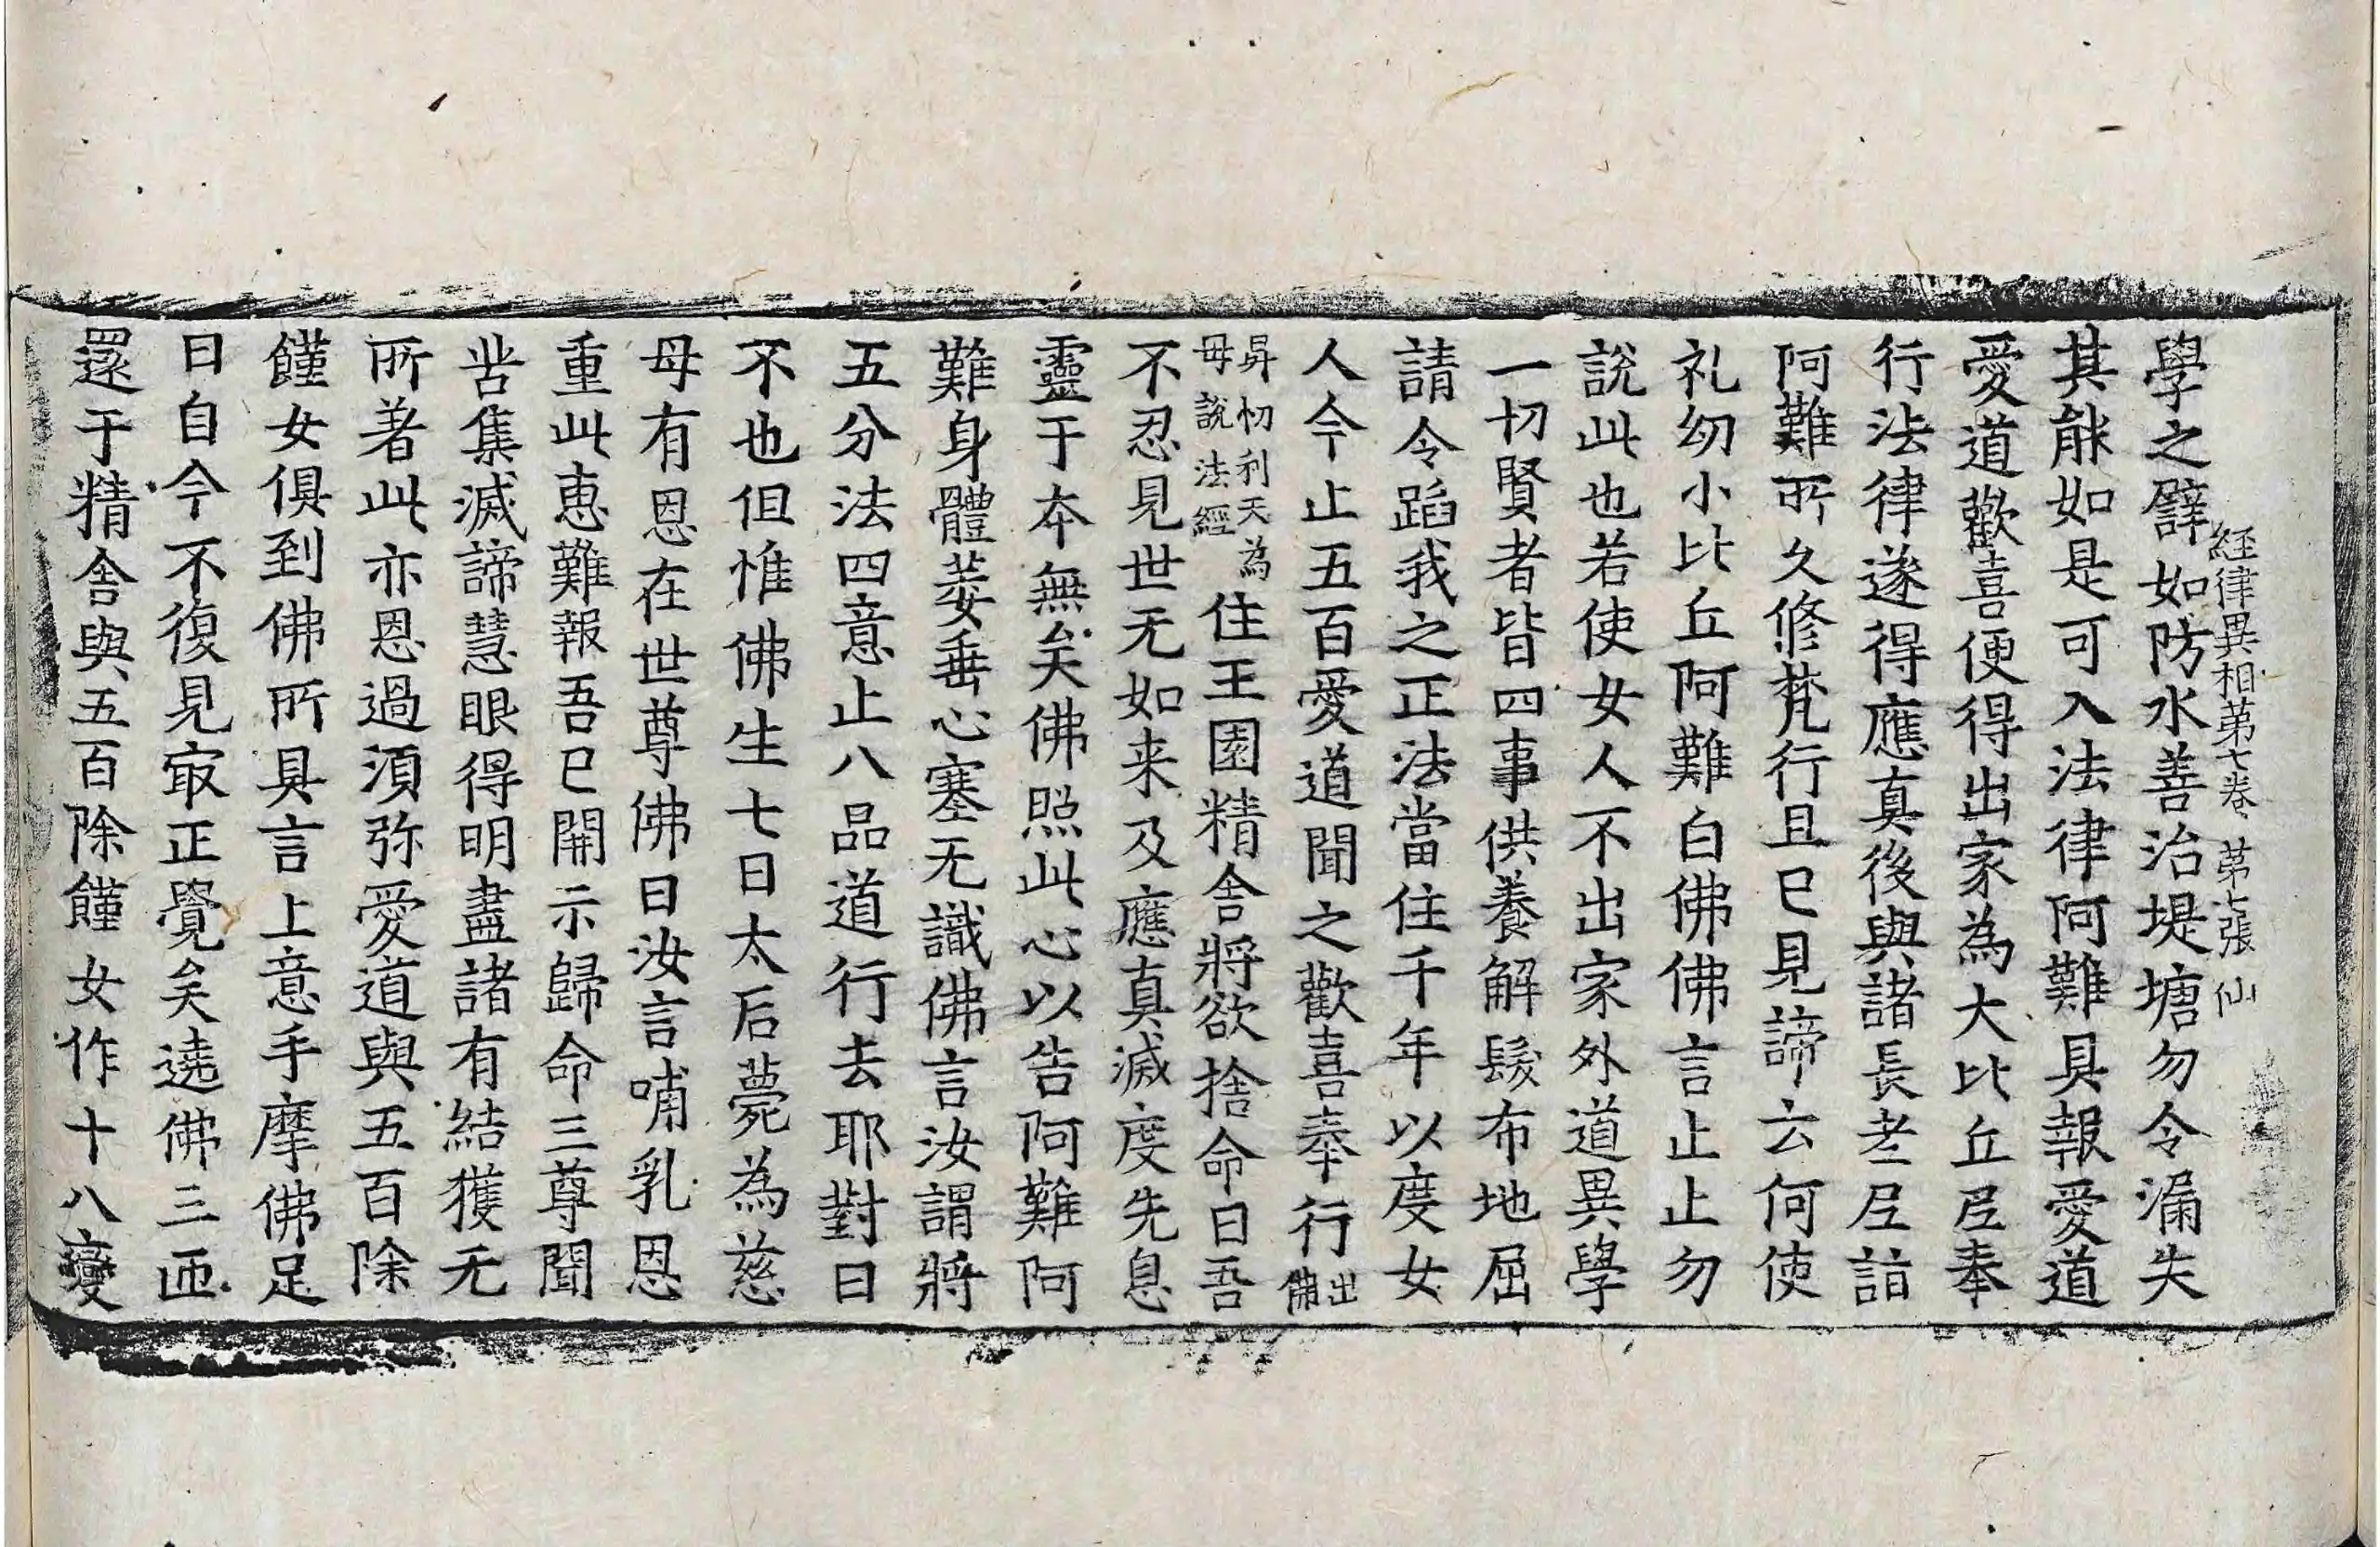 經律異相第七卷 第七張 仙
學之譬如防水善治堤塘勿令漏失
其能如是可入法律阿難具報愛道
愛道歡喜便得出家為大比丘尼奉
行法律遂得應真後與諸長老尼詣
阿難所久修梵行且已見諦云何使
礼幼小比丘阿難白佛佛言止止勿
說此也若使女人不出家外道異學
一切賢者皆四事供養解髮布地屈
請令蹈我之正法當住千年以度女
人今止五百愛道聞之歡喜奉行出佛
昇忉利天為母說法經住王園精舍將欲捨命曰吾
不忍見世无如来及應真滅度先息
靈于本無矣佛照此心以告阿難阿
難身體萎垂心塞无識佛言汝謂將
五分法四意止八品道行去耶對曰
不也但惟佛生七日太后薨為慈
母有恩在世尊佛曰汝言哺乳恩
重此恵難報吾已開示歸命三尊聞
苦集滅諦慧眼得明盡諸有結獲无
所著此亦恩過須弥愛道與五百除
饉女俱到佛所具言上意手摩佛足
曰自今不復見冣正覺矣遶佛三匝
還于精舍與五百除饉女作十八變